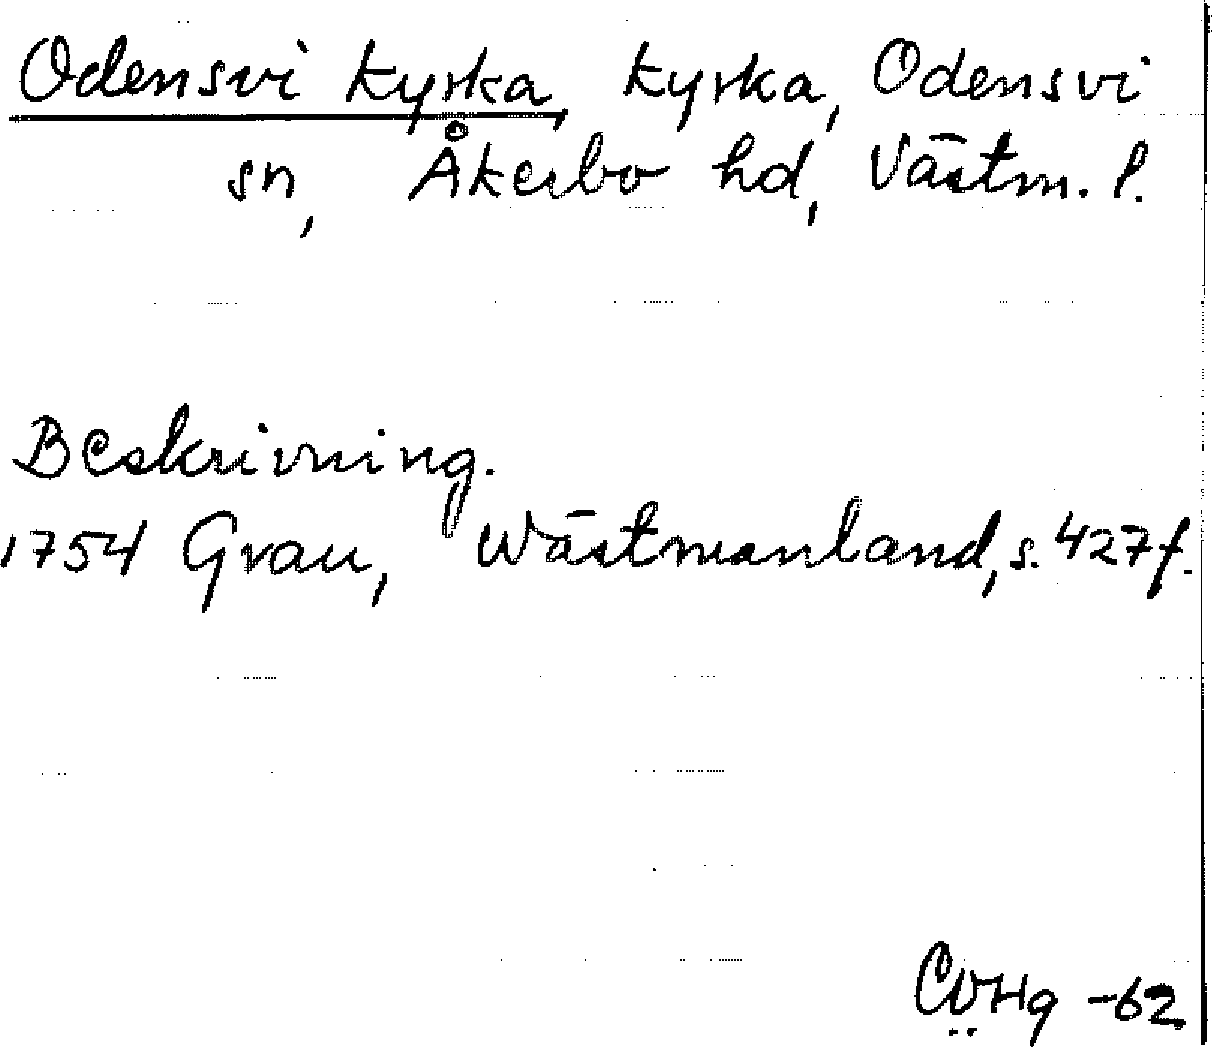 Odensvi kyrka, kyrka, Odensvi
sn, Åkerbo hd, Västm. l.
Beskrivning.
1754 Grau, Wästmanland, s. 427 f.
-62